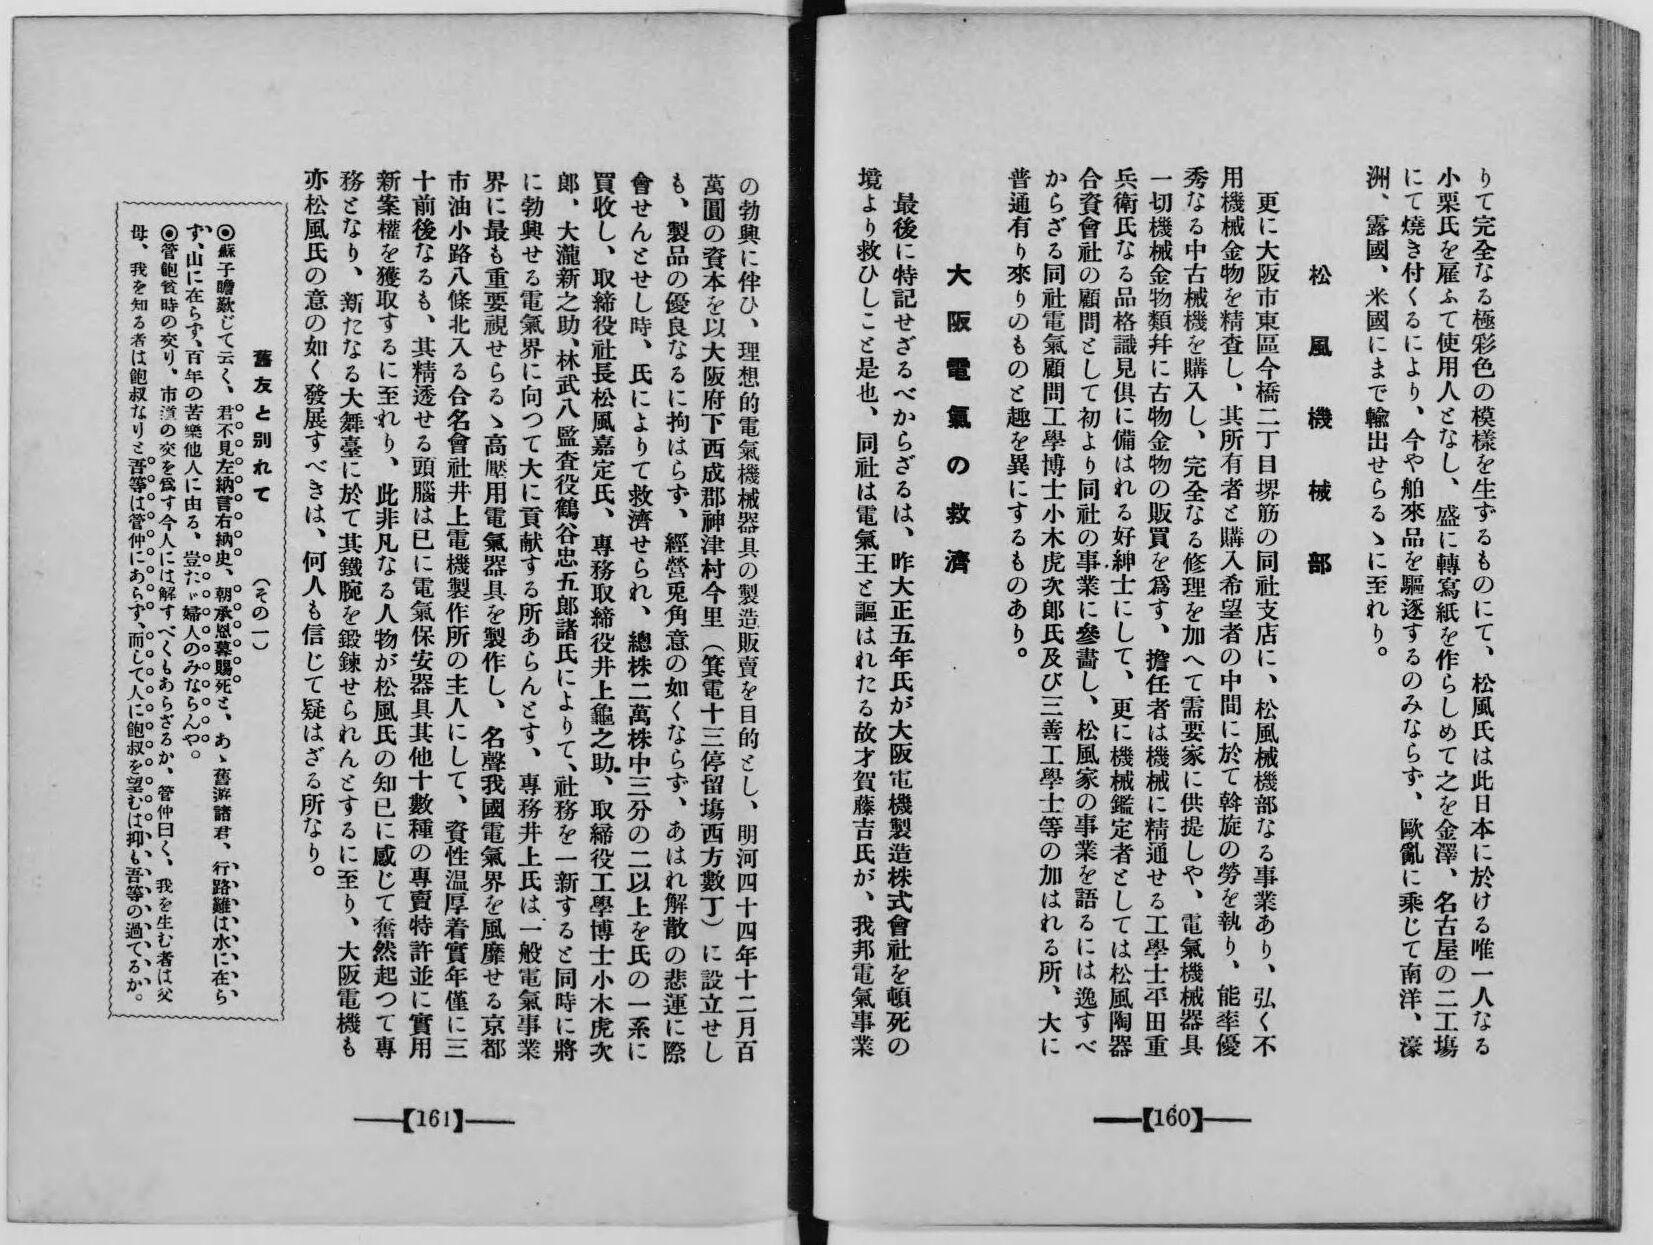 りて完全なる極彩色の模樣を生ずるものにて、松風氏は此日本に於ける唯一人なる
小栗氏を雇ふて使用人となし、盛に轉寫紙を作らしめて之を金澤、名古屋の二工塲
にて燒き付くるにより、今や舶來品を驅逐するのみならず、歐亂に乘じて南洋、濠
洲、露國、米國にまで輸出せらるゝに至れり。
松風機械部
更に大阪市東區今橋二丁目堺筋の同社支店に、松風械機部なる事業あり、弘く不
用機械金物を精査し、其所有者と購入希望者の中間に於て斡旋の勞を執り、能率優
秀なる中古械機を購入し、完全なる修理を加へて需要家に供提しや、電氣機械器具
一切機械金物類幷に古物金物の販買を爲す、擔任者は機械に精通せる工學士平田重
兵衛氏なる品格識見俱に備はれる好紳士にして、更に機械鑑定者としては松風陶器
合資會社の顧問として初より同社の事業に參畵し、松風家の事業を語るには逸すべ
からざる同社電氣顧問工學博士小木虎次郎氏及び三善工學士等の加はれる所、大に
普通有り來りのものと趣を異にするものあり。
大阪電氣の救濟
最後に特記せざるべからざるは、昨大正五年氏が大阪電機製造株式會社を頓死の
境より救ひしこと是也、同社は電氣王と謳はれたる故才賀藤吉氏が、我邦電氣事業
【160】
の勃興に伴ひ、理想的電氣機械器具の製造販賣を目的とし、明河四十四年十二月百
萬圓の資本を以大阪府下西成郡神津村今里（箕電十三停留塲西方數丁）に設立せし
も、製品の優良なるに拘はらず、經營兎角意の如くならず、あはれ解散の悲運に際
會せんとせし時、氏によりて救濟せられ、總株二萬株中三分の二以上を氏の一系に
買收し、取締役社長松風嘉定氏、專務取締役井上龜之助、取締役工學博士小木虎次
郎、大瀧新之助、林武八監査役鶴谷忠五郎諸氏によりて、社務を一新すると同時に將
に勃興せる電氣界に向つて大に貢献する所あらんとす、專務井上氏は一般電氣事業
界に最も重要視せらるゝ高壓用電氣器具を製作し、名聲我國電氣界を風靡せる京都
市油小路八條北入る合名會社井上電機製作所の主人にして、資性温厚着實年僅に三
十前後なるも、其精透せる頭腦は已に電氣保安器具其他十數種の專賣特許並に實用
新案權を獲取するに至れり、此非凡なる人物が松風氏の知已に感じて奮然起つて專
務となり、新たなる大舞臺に於て其鐵腕を鍛鍊せられんとするに至り、大阪電機も
亦松風氏の意の如く發展すべきは、何人も信じて疑はざる所なり。
舊友と別れて（その一）
◉蘇子瞻歎じて云く、君不見左納言右納史、朝承恩暮賜死と、あゝ舊游諸君、行路難は水に在ら
ず、山に在らず、百年の苦樂他人に由る、豈たゞ婦人のみならんや。
◉管鮑貧時の交り、市道の交を爲す今人には解すべくもあらざるか、管仲曰く、我を生む者は父
母、我を知る者は鮑叔なりと吾等は管仲にあらず、而して人に鮑叔を望むは抑も吾等の過てるか。
【161】